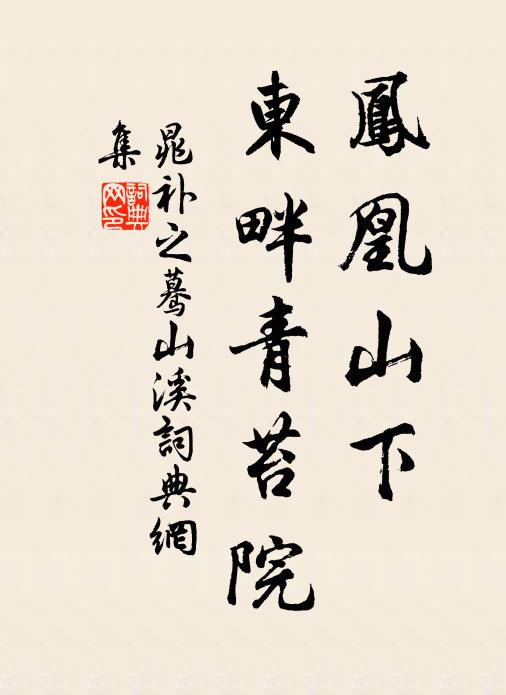 鳳凰山下
東畔青苔院
晁补之驀山溪詞典網
集
詞典
网印